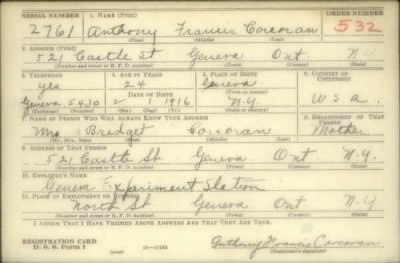 SERIAL NUMBER 1. NAME (Print) ORDER NUMBER
2761 Anthony Francis Corcoran 532
(First) (Middle) (Last)
2. ADDRESS (Print)
521 Castle St Geneva Ont N.Y
(Number and street or R. F. D. number) (Town) (County) (State)
3. TELEPHONE 4. AGE IN YEARS 5. PLACE OF BIRTH 6. COUNTRY OF CITIZENSHIP
yes 24 Geneva
DATE OF BIRTH (Town or county)
Geneva 5430 1 1916 N.Y U.S.A.
(Exchange) (Number) (Mo.) (Day) (Yr.) (State or country)
7. NAME OF PERSON WHO WILL ALWAYS KNOW YOUR ADDRESS 8. RELATIONSHIP OF THAT PERSON
Mrs Bridget Corcoran Mother
(Mr., Mrs., Miss) (First) (Middle) (Last)
9. ADDRESS OF THAT PERSON
521 Castle St. Geneva Ont. N.Y.
(Number and street or R. F. D. number) (Town) (County) (State)
10. EMPLOYER'S NAME
Geneva Experiment Station
11. PLACE OF EMPLOYMENT OR BUSINESS
North St Geneva Ont N.Y
(Number and street or R. F. D. number) (Town) (County) (State)
I AFFIRM THAT I HAVE VERIFIED ABOVE ANSWERS AND THAT THEY ARE TRUE.
REGISTRATION CARD
D. S. S. Form 1 16—17105 Anthony Francis Corcoran
(Registrant's signature)